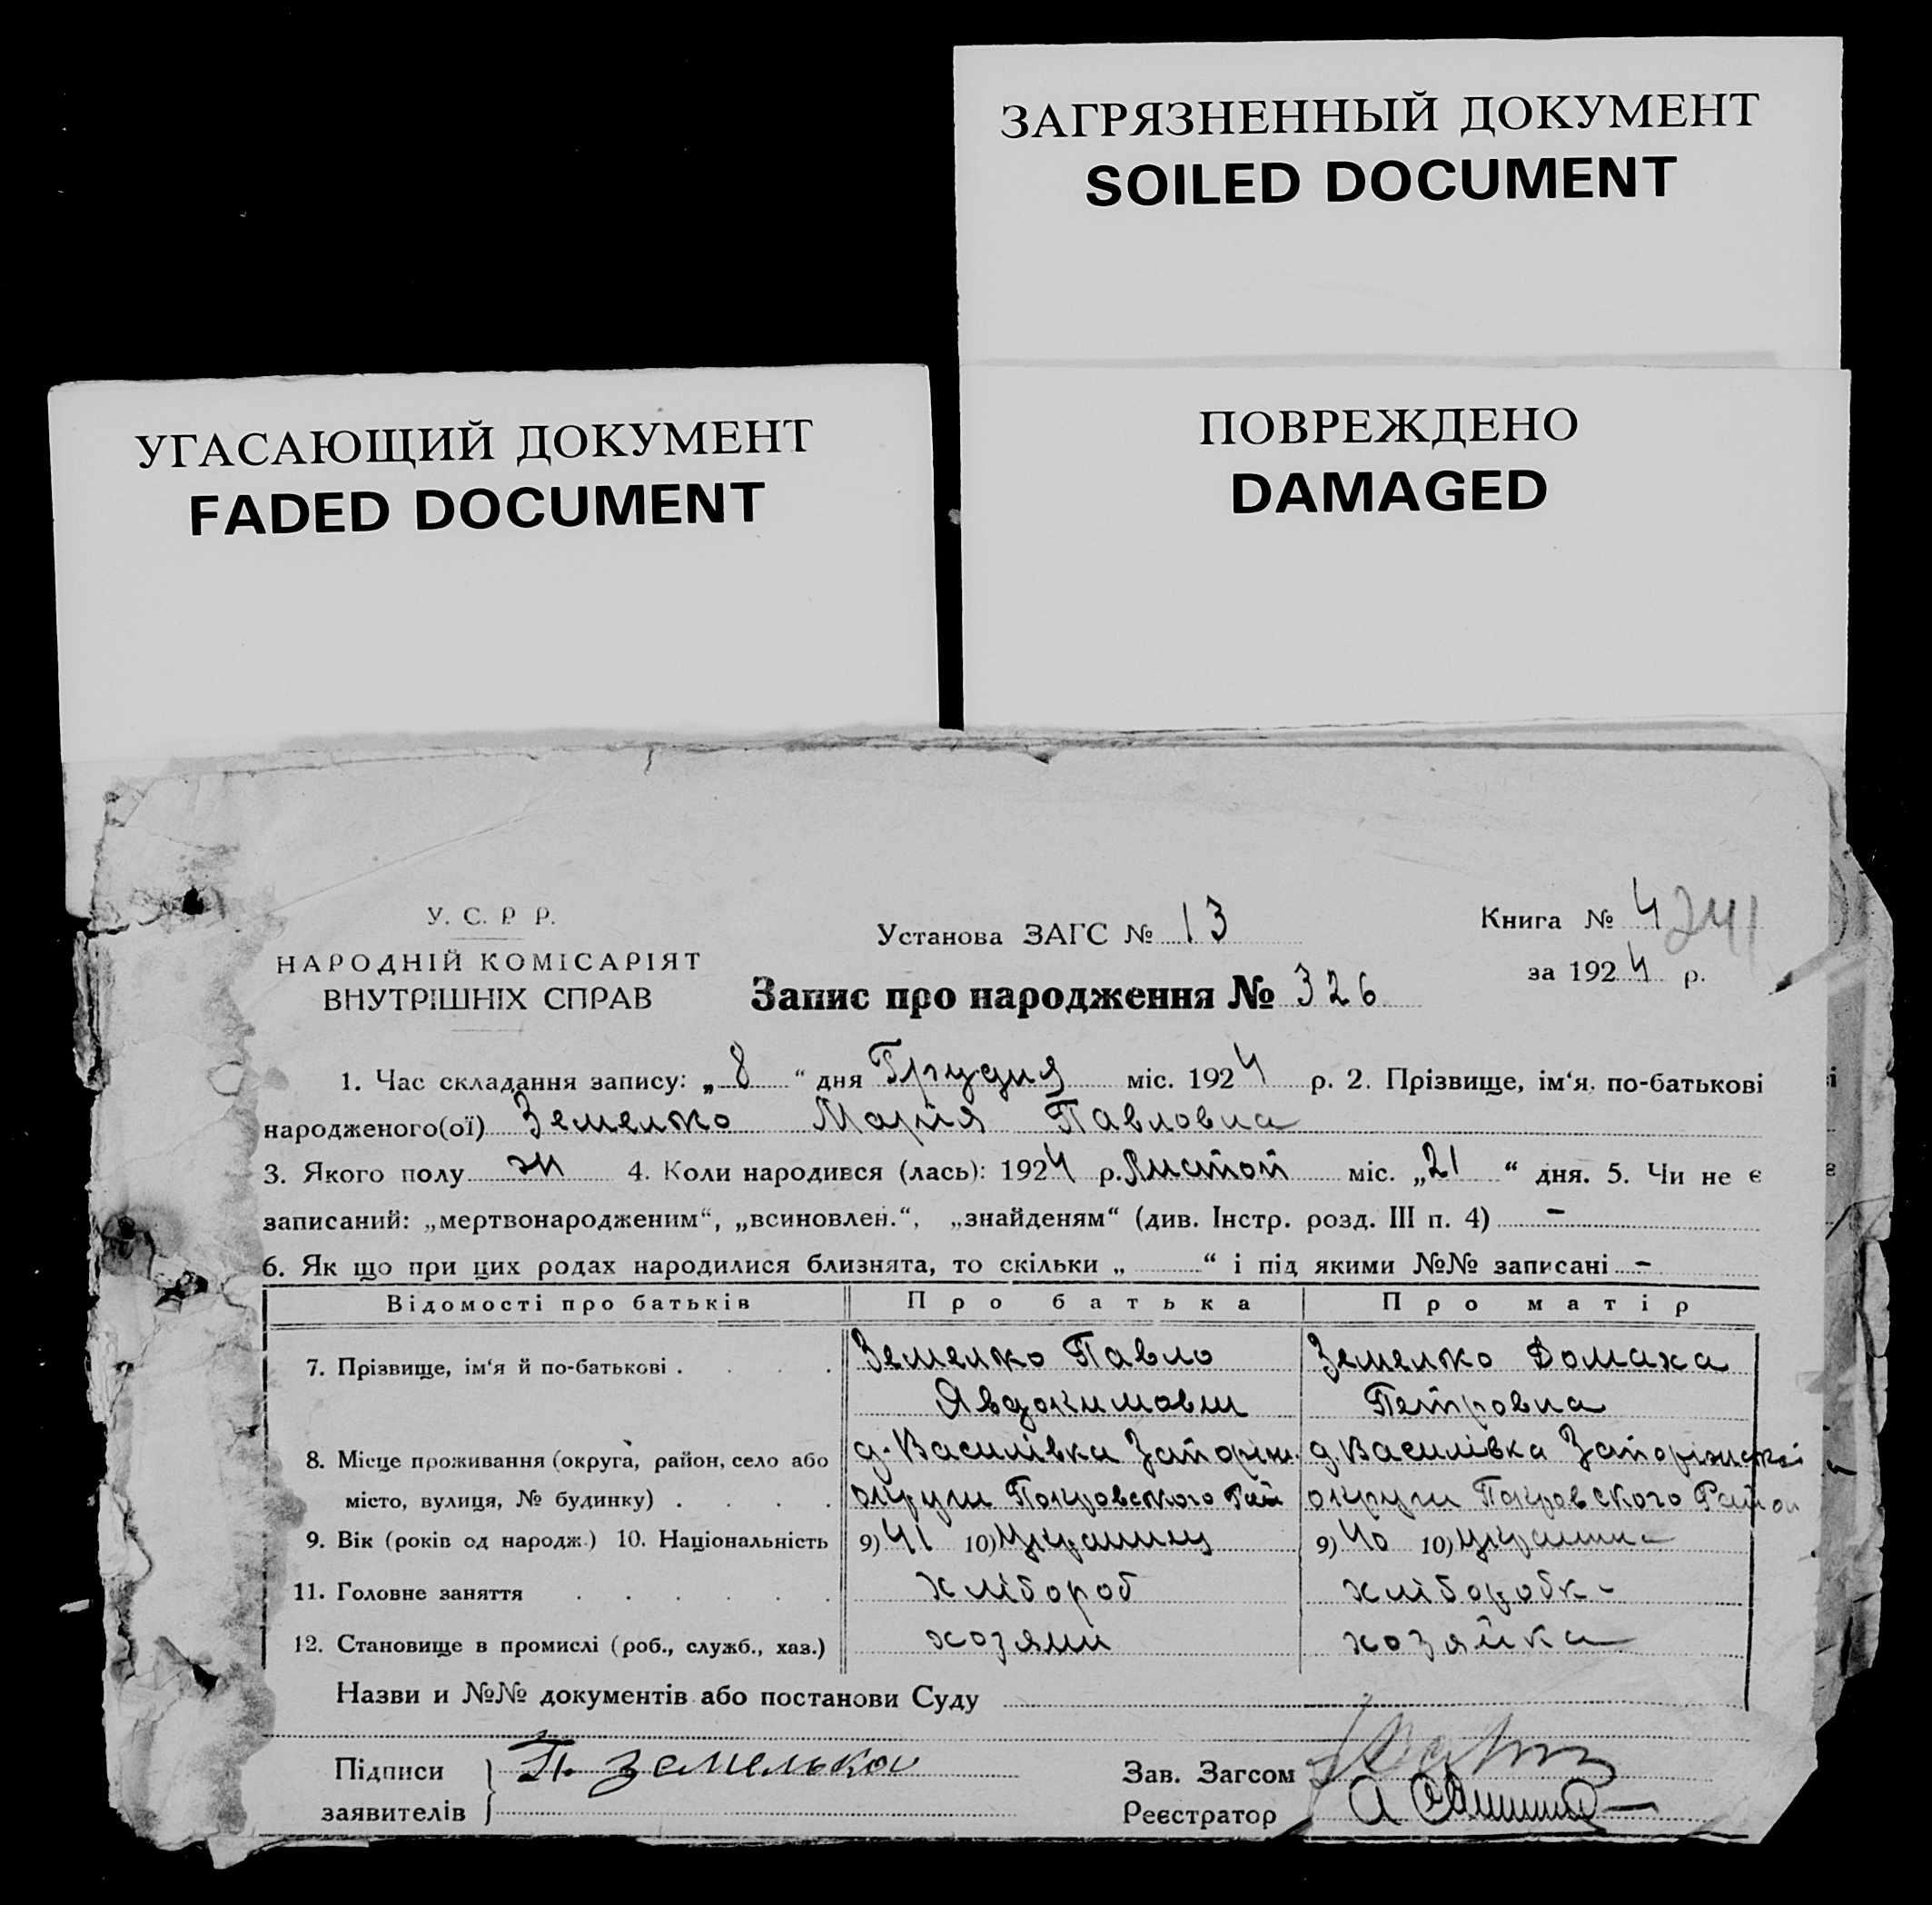 ЗАГРЯЗНЕННЫЙ ДОКУМЕНТ
SOILED DOCUMENT
УГАСАЮЩИЙ ДОКУМЕНТ
FADED DOCUMENT
ПОВРЕЖДЕНО
DAMAGED
У. С. Р. Р.
НАРОДНІЙ КОМІСАРІЯТ
ВНУТРІШНІХ СПРАВ
Установа ЗАГС № 13
Запис про народження № 326
Книга № 4 241
за 1924 р.
1. Час складання запису: „ 8 “ дня Грудня міс. 1924 р. 2. Прізвище, ім‘я, по-батькові
народженого(ої) Земелко Марія Павловна
3. Якого полу ж 4. Коли народився (лась): 1924 р. Листоп міс. „21 “ дня. 5. Чи не є
записаний: „мертвонародженим“, „всиновлен.“, „знайденям“ (див. Інстр. розд. III п. 4) –
6. Як що при цих родах народилися близнята, то скільки „ “ і під якими №№ записані –
Відомості про батьків Про батька Про матір
7. Прізвище, ім‘я й по-батькові . . . . Земелко Павло Земелко Домаха
Явдокимович Петровна
8. Місце проживання (округа, район, село або д. Василівка Запоріж. д. Василівка Запоріжскої
місто, вулиця, № будинку) . . . . округи Покровского Рай округи Покровского Район
9. Вік (років од народж.) 10. Національність 9) 41 10) Українец 9) 40 10) Українка
11. Головне заняття . . . . . . хлібороб хліборобк
12. Становище в промислі (роб., служб., хаз.) хозяин хозяйка
Назви и №№ документів або постанови Суду
Підписи П. Земелько Зав. Загсом
заявителів Реєстратор А